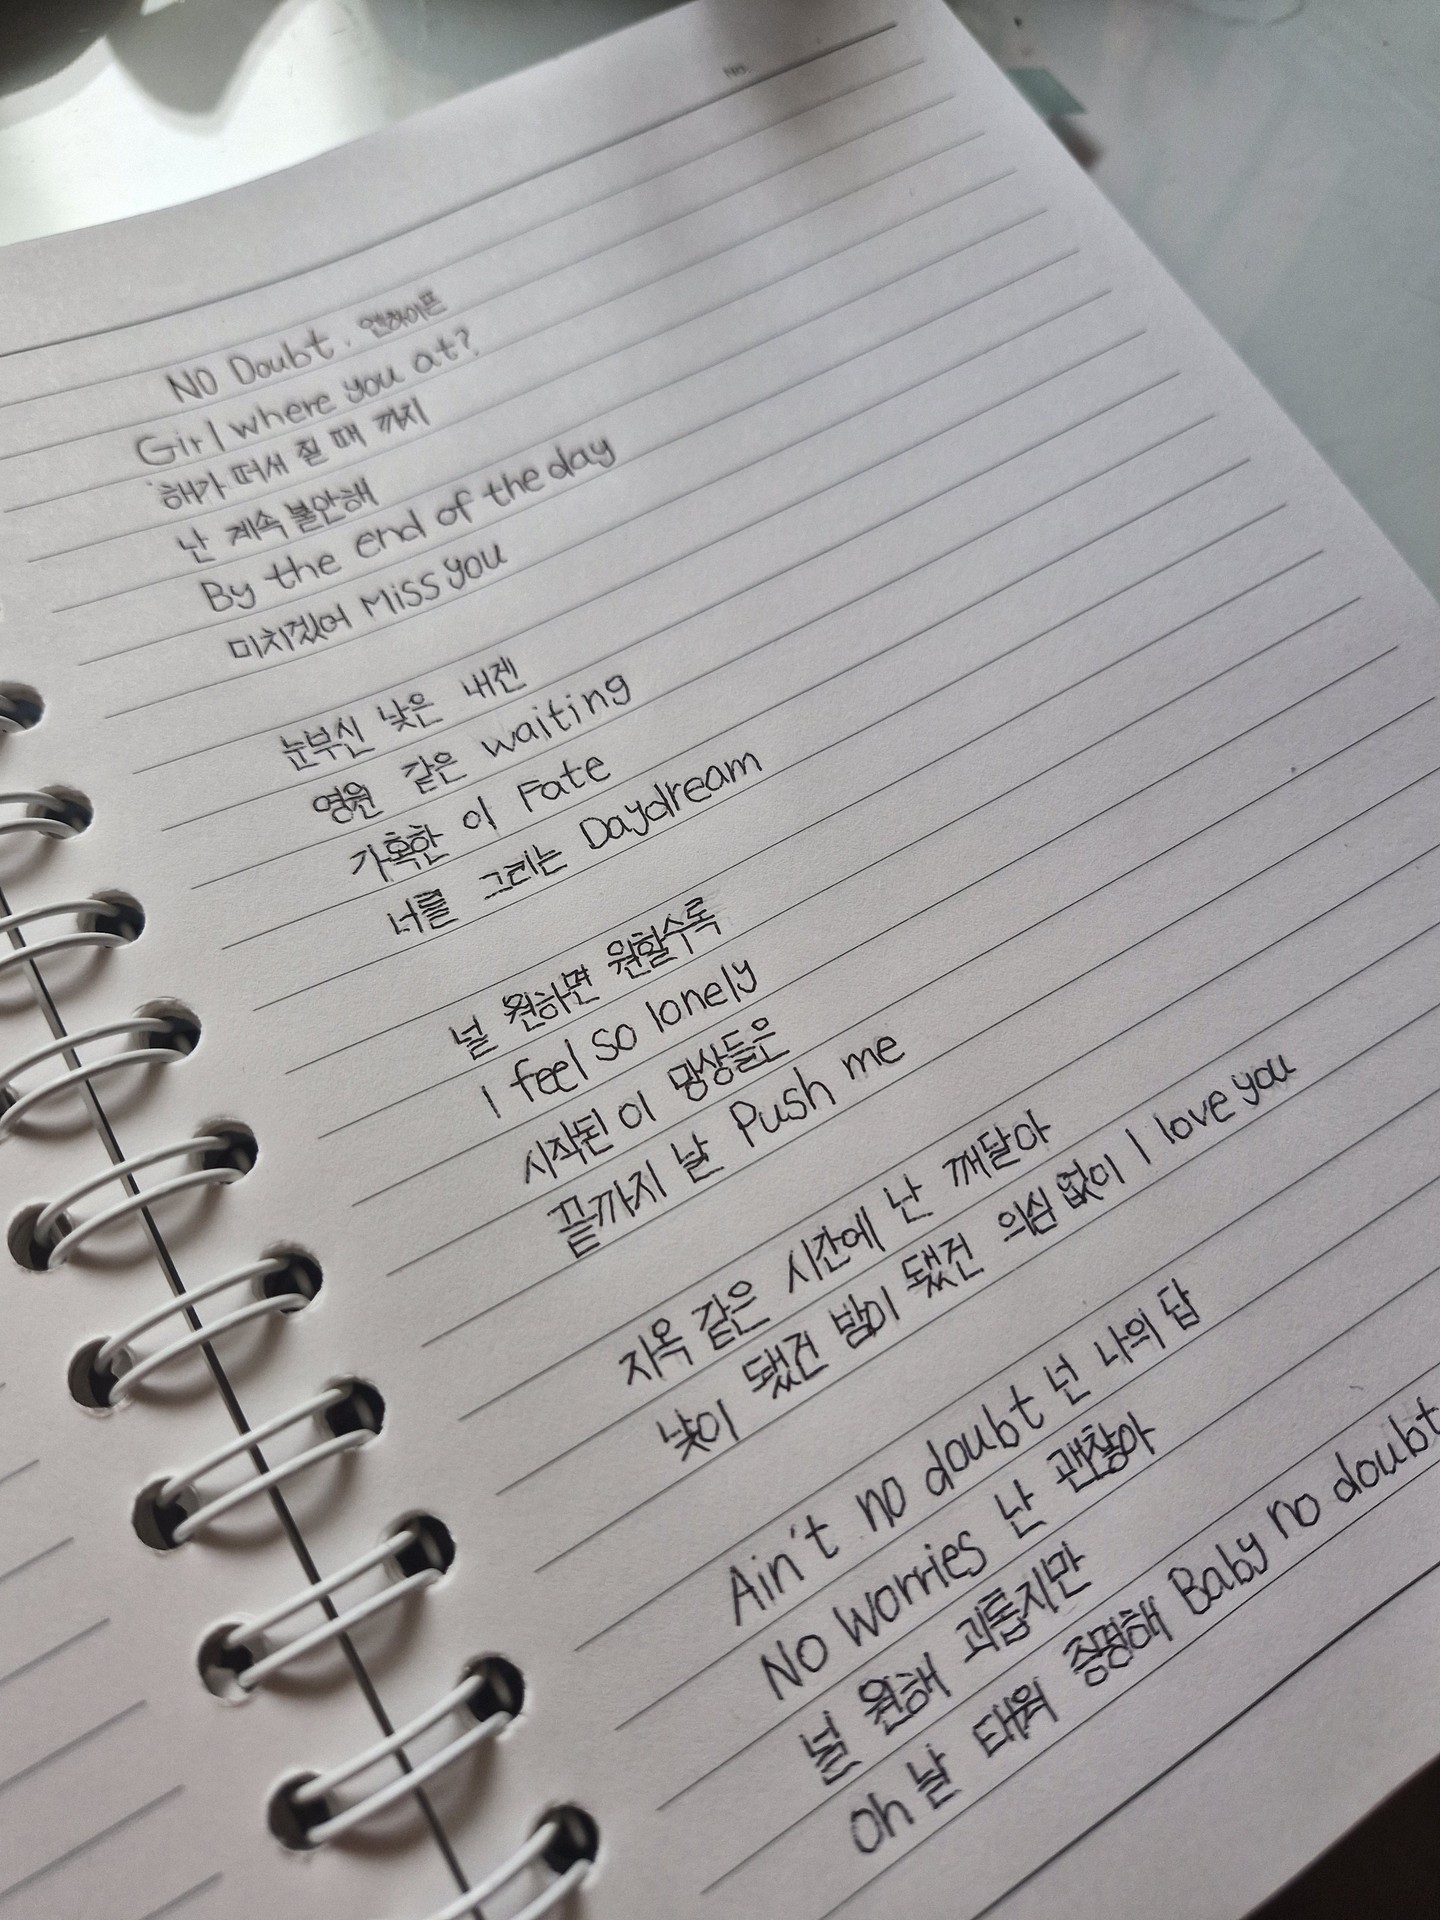 No.
NO Doubt. 엔하이픈
Girl where you at?
해가 떠서 질 때 까지
난 계속 불안해
By the end of the day
미치겠어 Miss you
눈부신 낮은 내겐
영원 같은 waiting
가혹한 이 Fate
너를 그리는 Daydream
널 원하면 원할수록
I feel so lonely
시작된 이 망상들은
끝까지 날 Push me
지옥 같은 시간에 난 깨달아
낮이 됐건 밤이 됐건 의심 없이 I love you
Ain't no doubt 넌 나의 답
No worries 난 괜찮아
널 원해 괴롭지만
Oh 날 태워 증명해 Baby no doubt